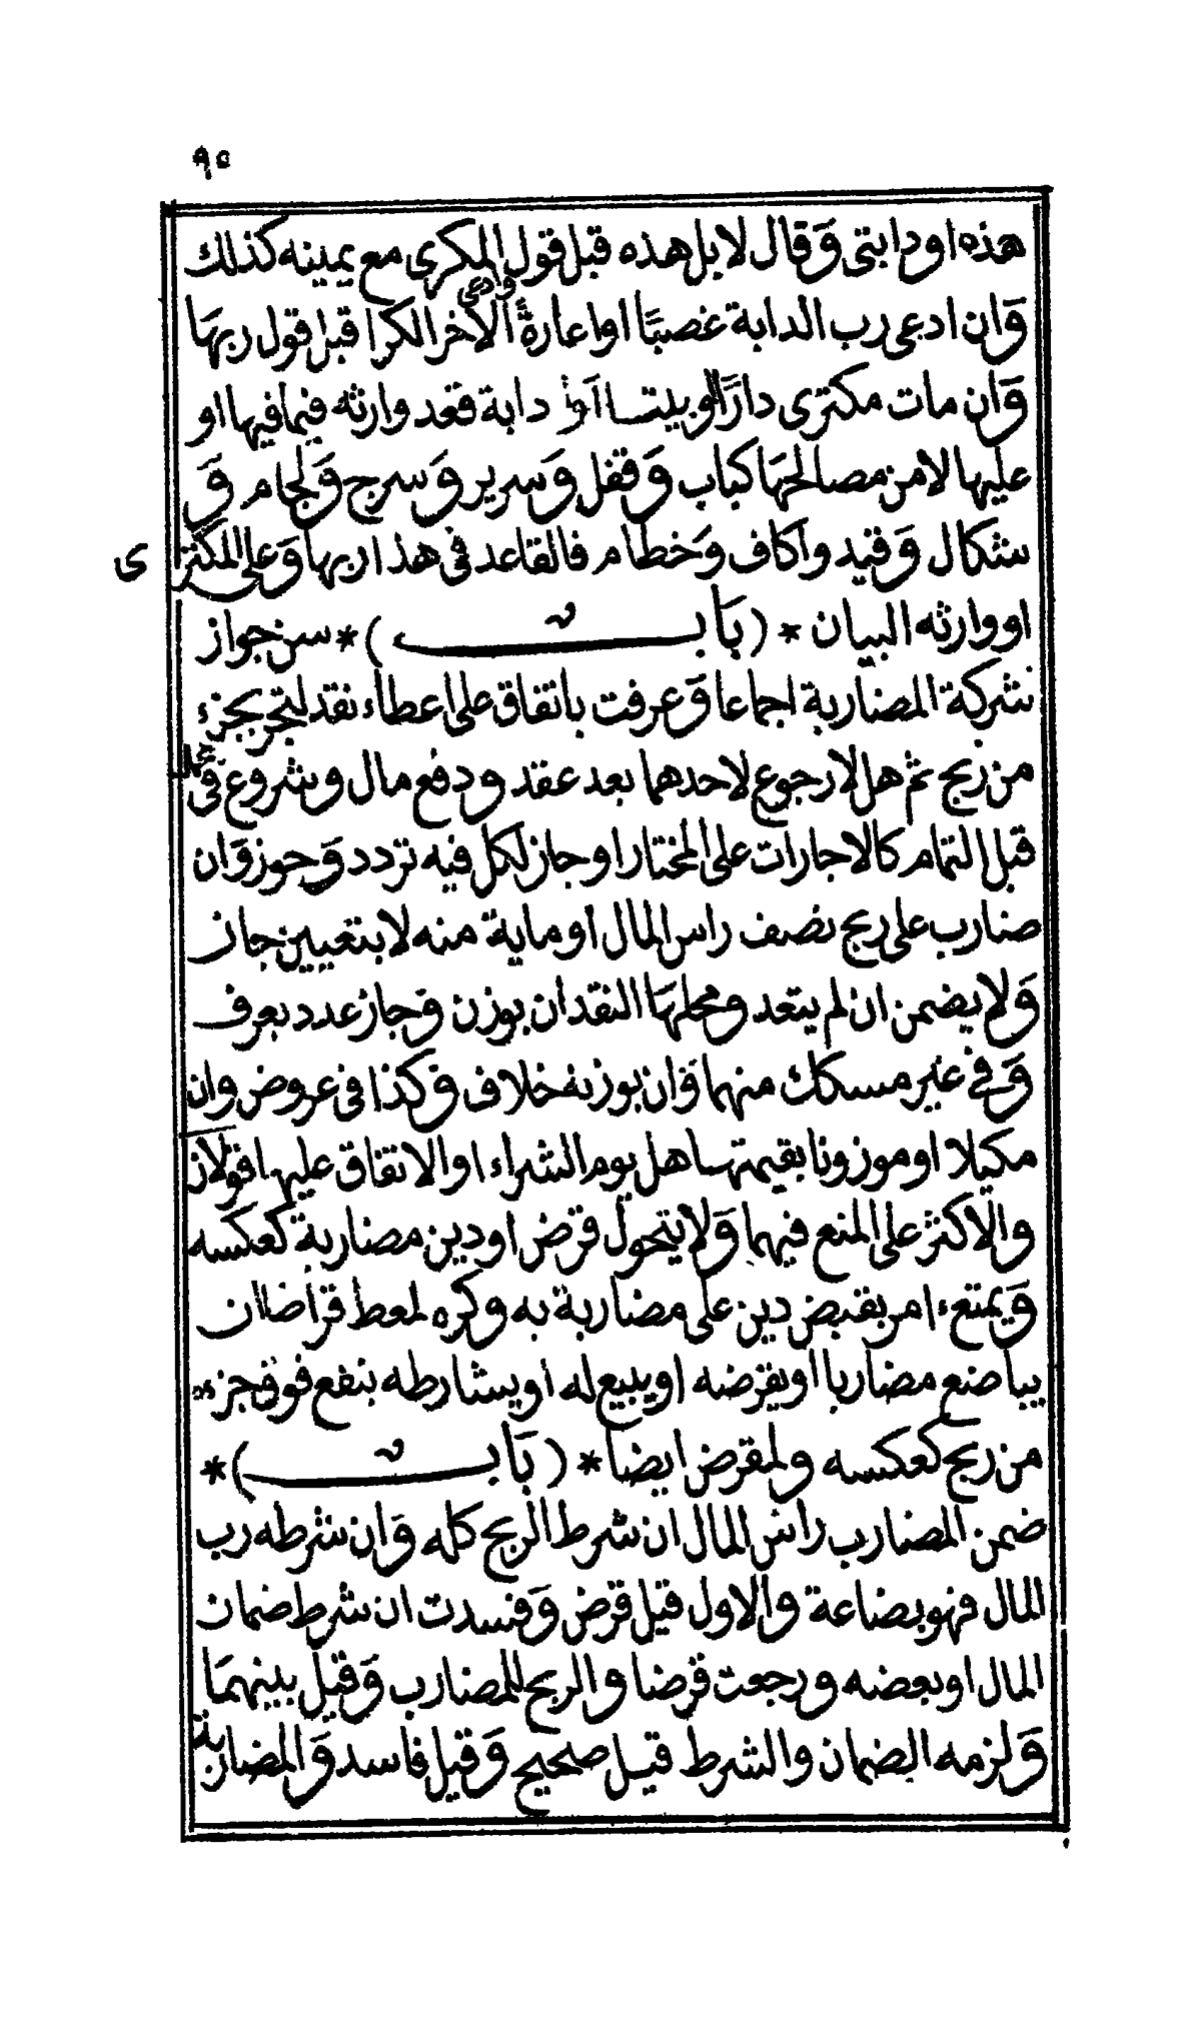 ٩٥
هذه اودابتى وَقال لا بل هذه قبل قول المكرى مع يمينه كذلك
وَان ادعى رب الدابة غصبًا اواعارةً وادعى الآخر الكرا قبل قول ربهَا
وَان مات مكترى دارًا اوبيتا او دابة فقعد وارثه فيما فيها او
عليها لا من مصالحهَا كباب وَقفل وَسرير وَسرج وَلجام وَ
شكال وَقيد واكاف وَخطام فالقاعد فى هذا ربها وَعلى المكترى
او وارثه البيان * ( بَاب ) * سن جواز
شركة المضاربة اجماعا وَعرفت باتفاق على اعطاء نقد لتجر بجزء
من ربح ثم هل لا رجوع لاحدهما بعد عقد ودفع مال وشروع فى عمل
قبل التمام كالاجارات على المختار اوجاز لكل فيه تردد وَجوز وَان
ضارب على ربح نصف راس المال او ماية منه لا بتعيين جاز
وَلا يضمن ان لم يتعد ومحلهَا النقدان بوزن وَجاز عدد بعرف
وَفى غير مسكك منهما وَان بوزنه خلاف وَكذا فى عروض وان
مكيلا اوموزونا بقيمتها هل يوم الشراء اوالاتفاق عليها قولان
والاكثر على المنع فيهما وَلا يتحول قرض اودين مضاربة كعكسه
وَيمتنع امر بقبض دين على مضاربة به وكره لمعط قراضا ان
يباضع مضاربا اويقرضه اويبيع له اويشارطه بنفع فوق جزء
من ربح كعكسه ولمقرض ايضا * ( بَاب ) *
ضمن المضارب راس المال ان شرط الربح كله وَان شرطه رب
المال فهو بضاعة والاول قيل قرض وَفسدت ان شرط ضمان
المال اوبعضه ورجعت قرضا والربح للمضارب وَقيل بينهمَا
وَلزمه الضمان والشرط قيل صحيح وَقيل فاسد وَالمضاربة